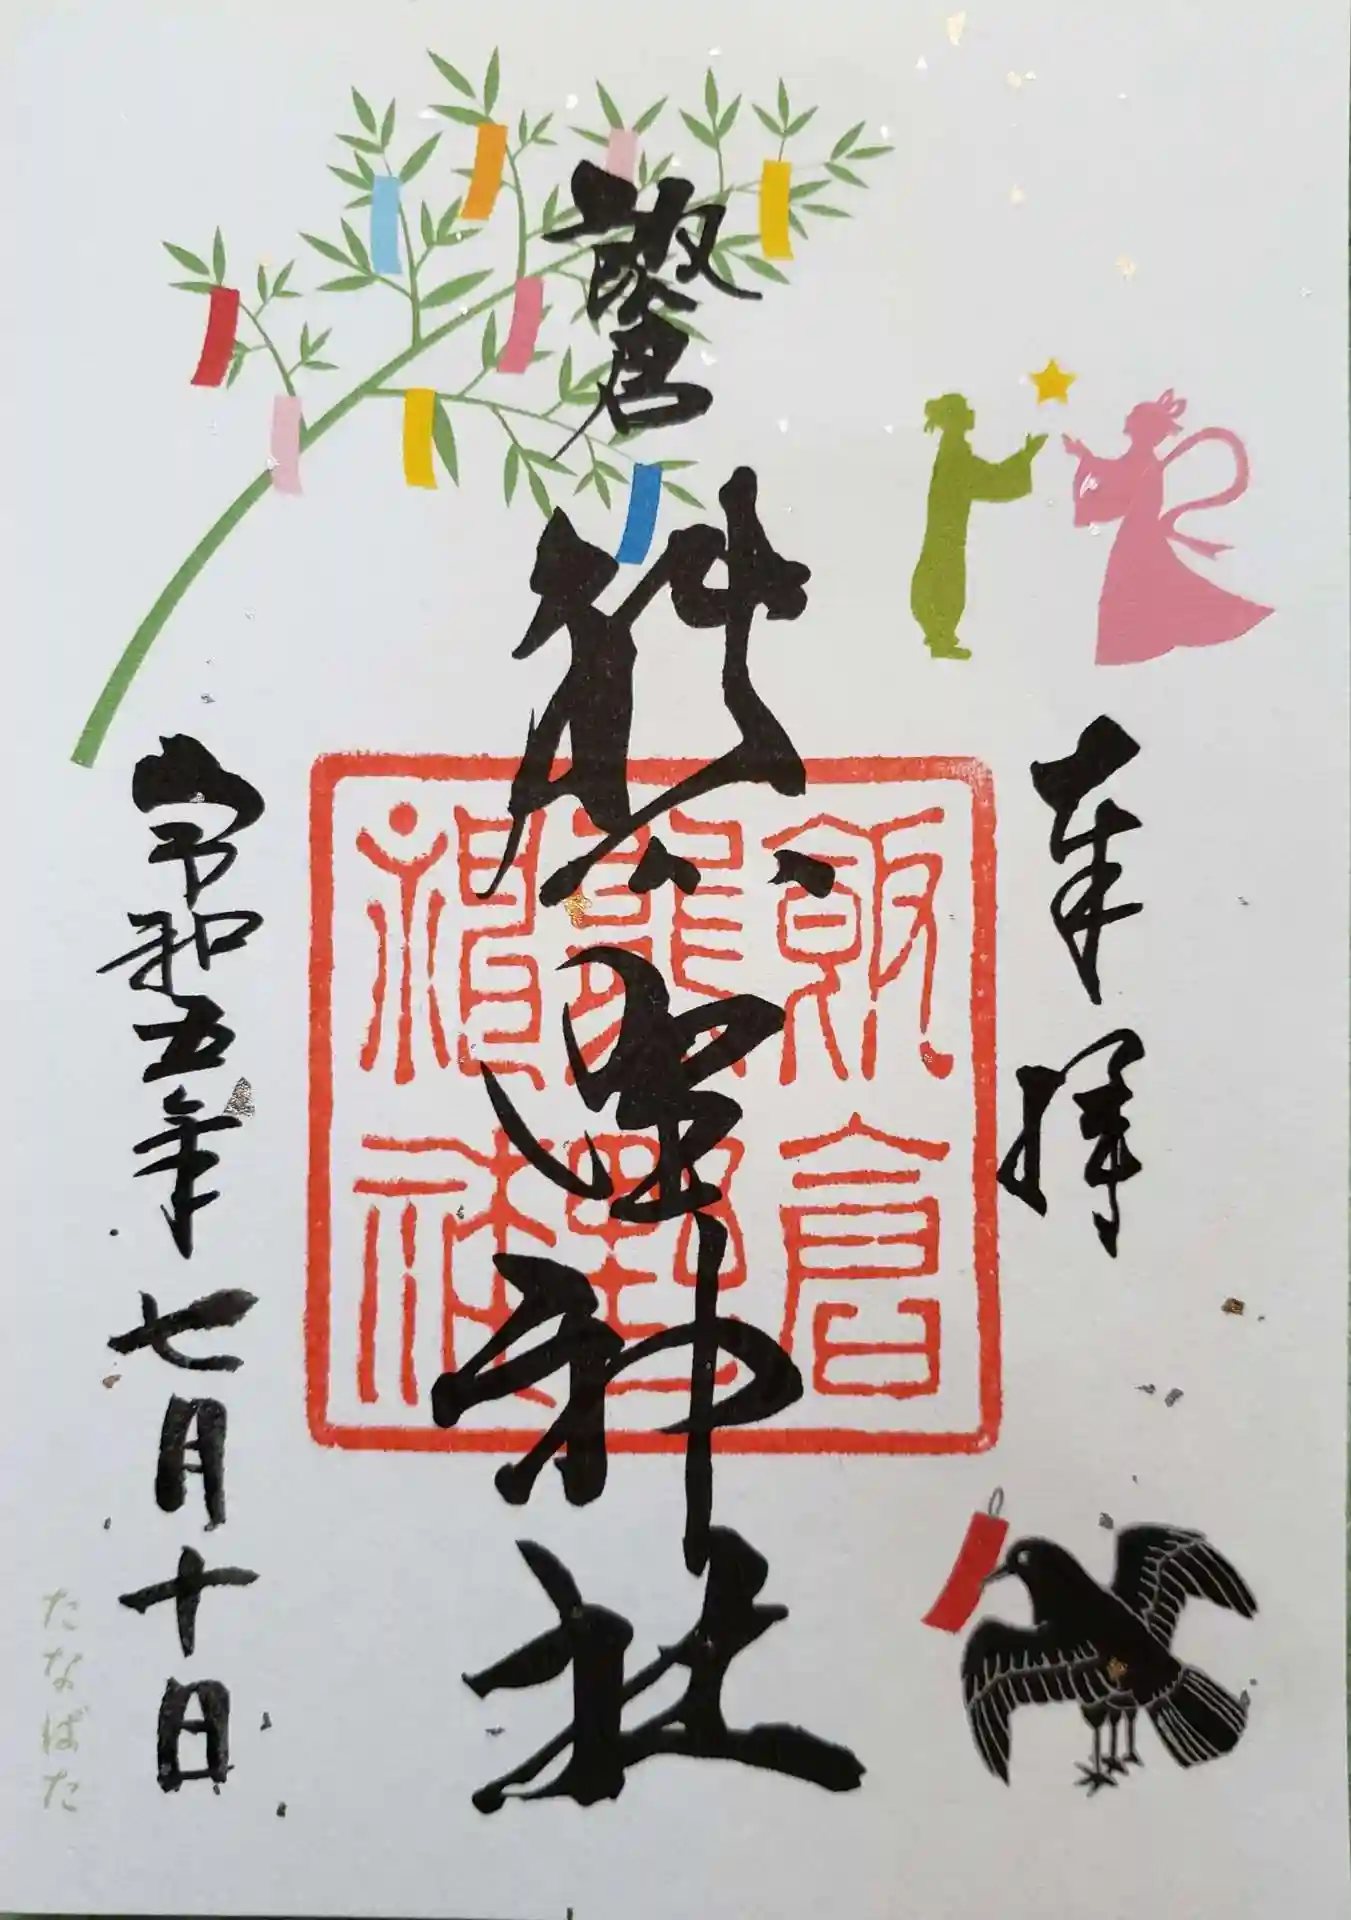 奉拝
飯倉
熊野神社
飯倉
熊野
神社
令和五年七月十日
たなばた